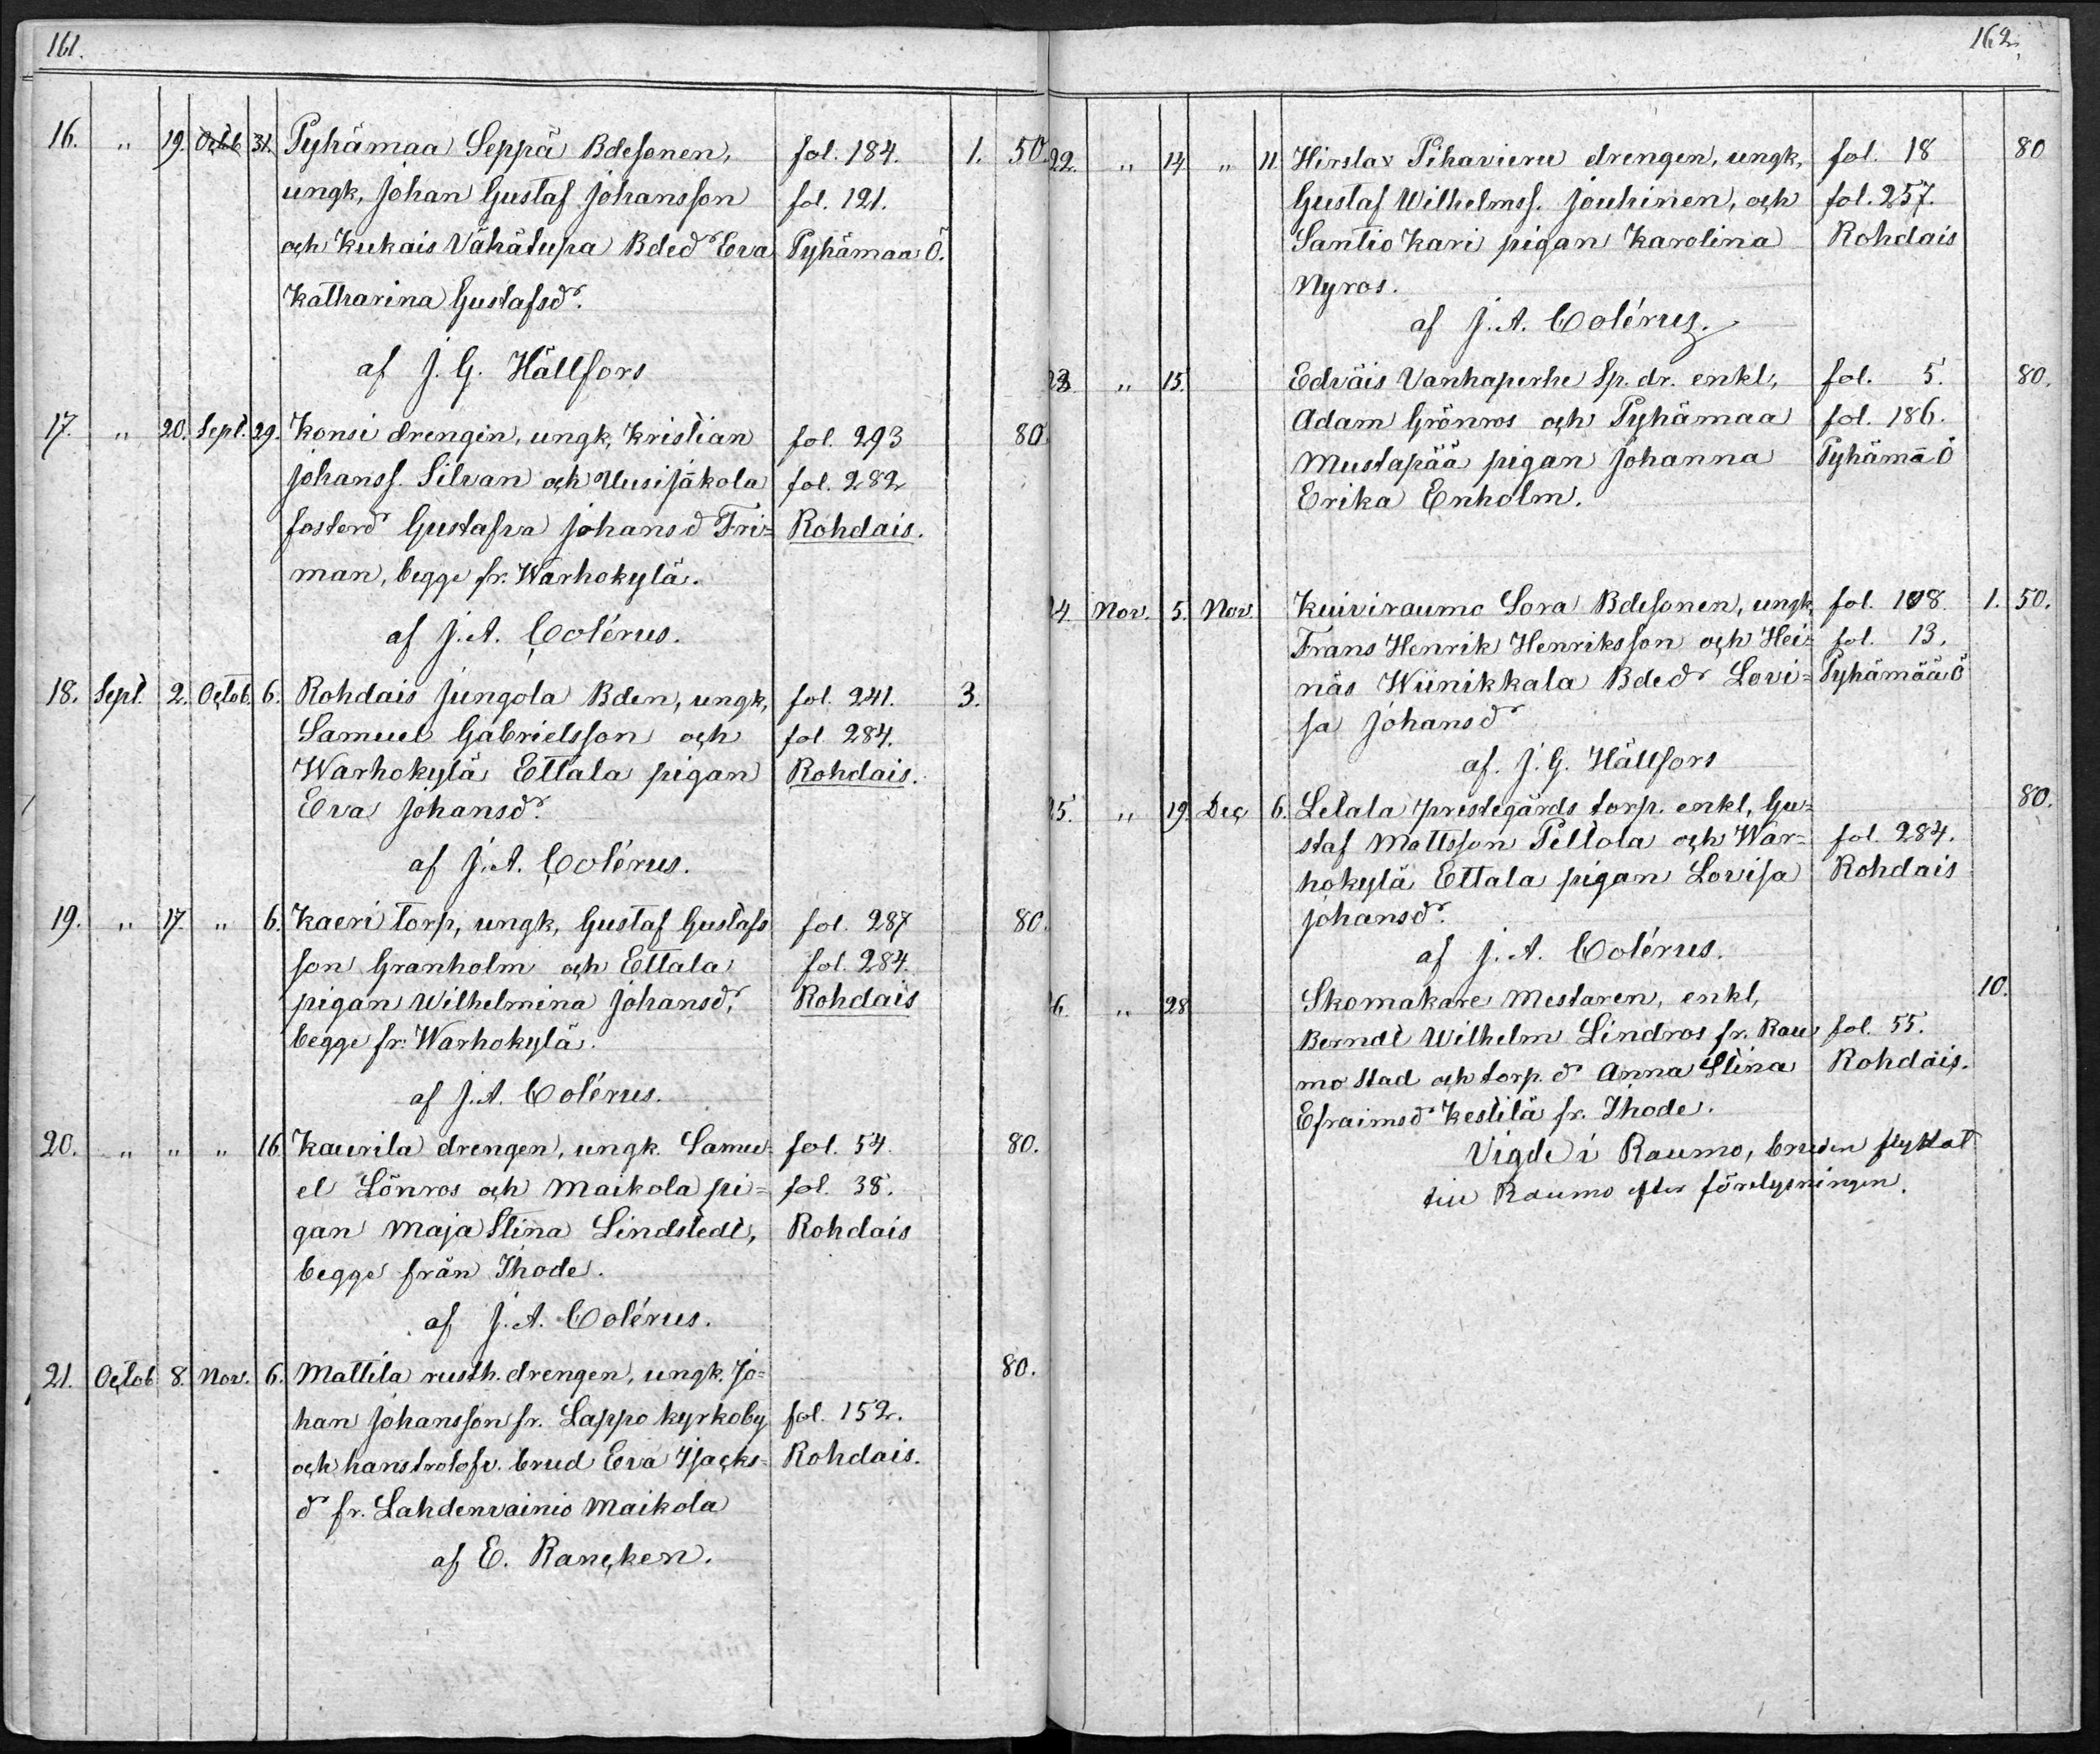 161.
16. " 19. Octob 31. Pyhämaa Seppä Bdesonen, fol. 184. 1. 50.
ungk, Johan Gustaf Johansson fol. 121.
och Kukais Vähätupa Bded Eva Pyhämaa Ö.
Katharina Gustafsd.
af J. G. Hällfors
17. " 20. Sept. 29. Konsi drengin, ungk, Kristian fol. 293 80.
Johanss. Silvan och Uusijäkola fol. 282
fosterd Gustafva Johansd Fri= Rohdais.
man, begge fr. Warhokylä.
af J. A. Colérus.
18. Sept. 2. Octob. 6. Rohdais Jungola Bden, ungk, fol. 241. 3.
Samuel Gabrielsson och fol 284.
Warhokylä Ettala pigan Rohdais.
Eva Johansd.
af J. A. Colérus.
19. " 17. " 6. Kaeri torp, ungk, Gustaf Gustafs fol. 287 80.
son Granholm och Ettala fol. 284.
pigan Wilhelmina Johansd, Rohdais
begge fr. Warhokylä.
af J. A. Colérus.
20. " " " 16 Kaurila drengen, ungk. Samu= fol. 54. 80.
el Lönros och Maikola pi= fol. 38.
gan Maja Stina Lindstedt, Rohdais
begge från Ihode.
af J. A. Colérus.
21. Octob 8. Nov. 6. Mattila rusth. drengen, ungk. Jo= 80.
han Johansson fr. Lappo kyrkoby fol. 152.
och hans trolofv. brud Eva Isacks= Rohdais.
d fr. Lahdenvainio Maikola
af E. Rancken.
162.
22. " 14 " 11. Hirslax Pihavieru drengen, ungk, fol. 18 80
Gustaf Wilhelmss. Jouhinen, och fol. 257.
Santio Kari pigan Karolina Rohdais
Nyros.
af J. A. Colérus.
23. " 15. Edväis Vanhaperhe Sp. dr. enkl, fol. 5. 80.
Adam Grönros och Pyhämaa fol. 186.
Mustapää pigan Johanna Pyhämā Ö
Erika Enholm.
24. Nov. 5. Nov. Kuiviraumo Sora Bdesonen, ungk, fol. 108. 1. 50.
Frans Henrik Henriksson och Hei= fol. 13.
näs Wiinikkala Bded Lovi= Pyhämää Ö
sa Johansd
af. J. G. Hällfors
25. " 19. Dec 6. Letala prestegårds torp. enkl, Gu= 80.
staf Mattsson Pellola och War= fol. 284.
hokylä Ettala pigan Lovisa Rohdais
Johansd.
af J. A. Colérus.
26. " 28 Skomakare Mestaren, enkl, 10.
Berndt Wilhelm Lindros fr. Rau= fol. 55.
mo Stad och torp. d Anna Stina Rohdais.
Efraimsd Kestilä fr. Ihode.
Vigde i Raumo, bruden flyttat
till Raumo efter förelysningen.